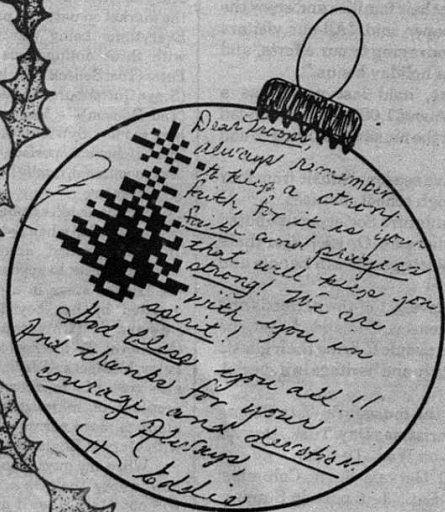 Dear Troops,
always remember
to keep a strong
faith, for it is your
faith and prayers
that will keep you
strong! We are
with you in
spirit!
God bless you all!!
And thanks for your
courage and devotion.
Always,
Eddie